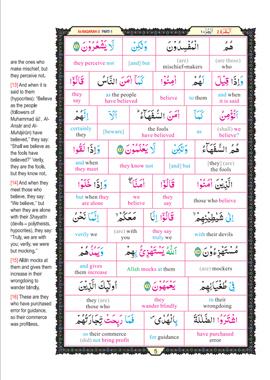 AL-BAQARAH-2 PART-1
are the ones who
make mischief, but
they perceive not.
[13] And when it is
said to them
(hypocrites): "Believe
as the people
(followers of
Muhammad
Ansâr and Al-
Muhâjirûn) have
believed," they say:
"Shall we believe as
the fools have
believed?" Verily,
they are the fools,
but they know not.
[14] And when they
meet those who
believe, they say:
"We believe," but
when they are alone
with their Shayâtîn
(devils – polytheists,
hypocrites), they say:
"Truly, we are with
you; verily, we were
but mocking."
[15] Allâh mocks at
them and gives them
increase in their
wrongdoing to
wander blindly.
[16] These are they
who have purchased
error for guidance,
so their commerce
was profitless.
هُمُ الْمُفْسِدُونَ وَلَٰكِن لَّا يَشْعُرُونَ
they perceive not [and] but (are) mischief-makers (are those) who
وَإِذَا قِيلَ لَهُمْ آمِنُوا كَمَا آمَنَ النَّاسُ قَالُوا
they say as the people have believed believe to them and when it is said
أَنُؤْمِنُ كَمَا آمَنَ السُّفَهَاءُ أَلَا إِنَّهُمْ
certainly they [beware] the fools have believed as (shall) we believe"
هُمُ السُّفَهَاءُ وَلَٰكِن لَّا يَعْلَمُونَ وَإِذَا لَقُوا
and when they meet they know not [and] but [they] (are) the fools
الَّذِينَ آمَنُوا قَالُوا آمَنَّا وَإِذَا خَلَوْا
but when they are alone we believe they say those who believe
إِلَىٰ شَيَاطِينِهِمْ قَالُوا إِنَّا مَعَكُمْ إِنَّمَا نَحْنُ
verily we (are) with you they say truly we with their devils
مُسْتَهْزِئُونَ اللَّهُ يَسْتَهْزِئُ بِهِمْ وَيَمُدُّهُمْ
and gives them increase Allah mocks at them (are) mockers
فِي طُغْيَانِهِمْ يَعْمَهُونَ أُولَٰئِكَ الَّذِينَ
they (are) those who they wander blindly in their wrongdoing
اشْتَرَوُا الضَّلَالَةَ بِالْهُدَىٰ فَمَا رَبِحَت تِّجَارَتُهُمْ
so their commerce (did) not bring profit for guidance have purchased error
5